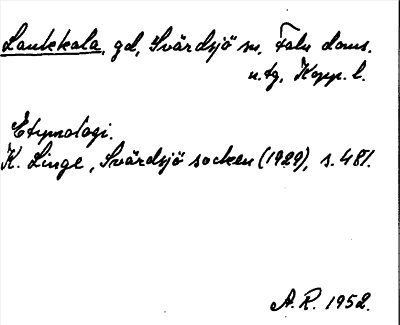 Laukkala, gd, Svärdsjö sn, Falu doms.
u.tg, Kopp. l.
Etymologi.
K. Linge, Svärdsjö socken (1929), s. 481.
A.R. 1952.